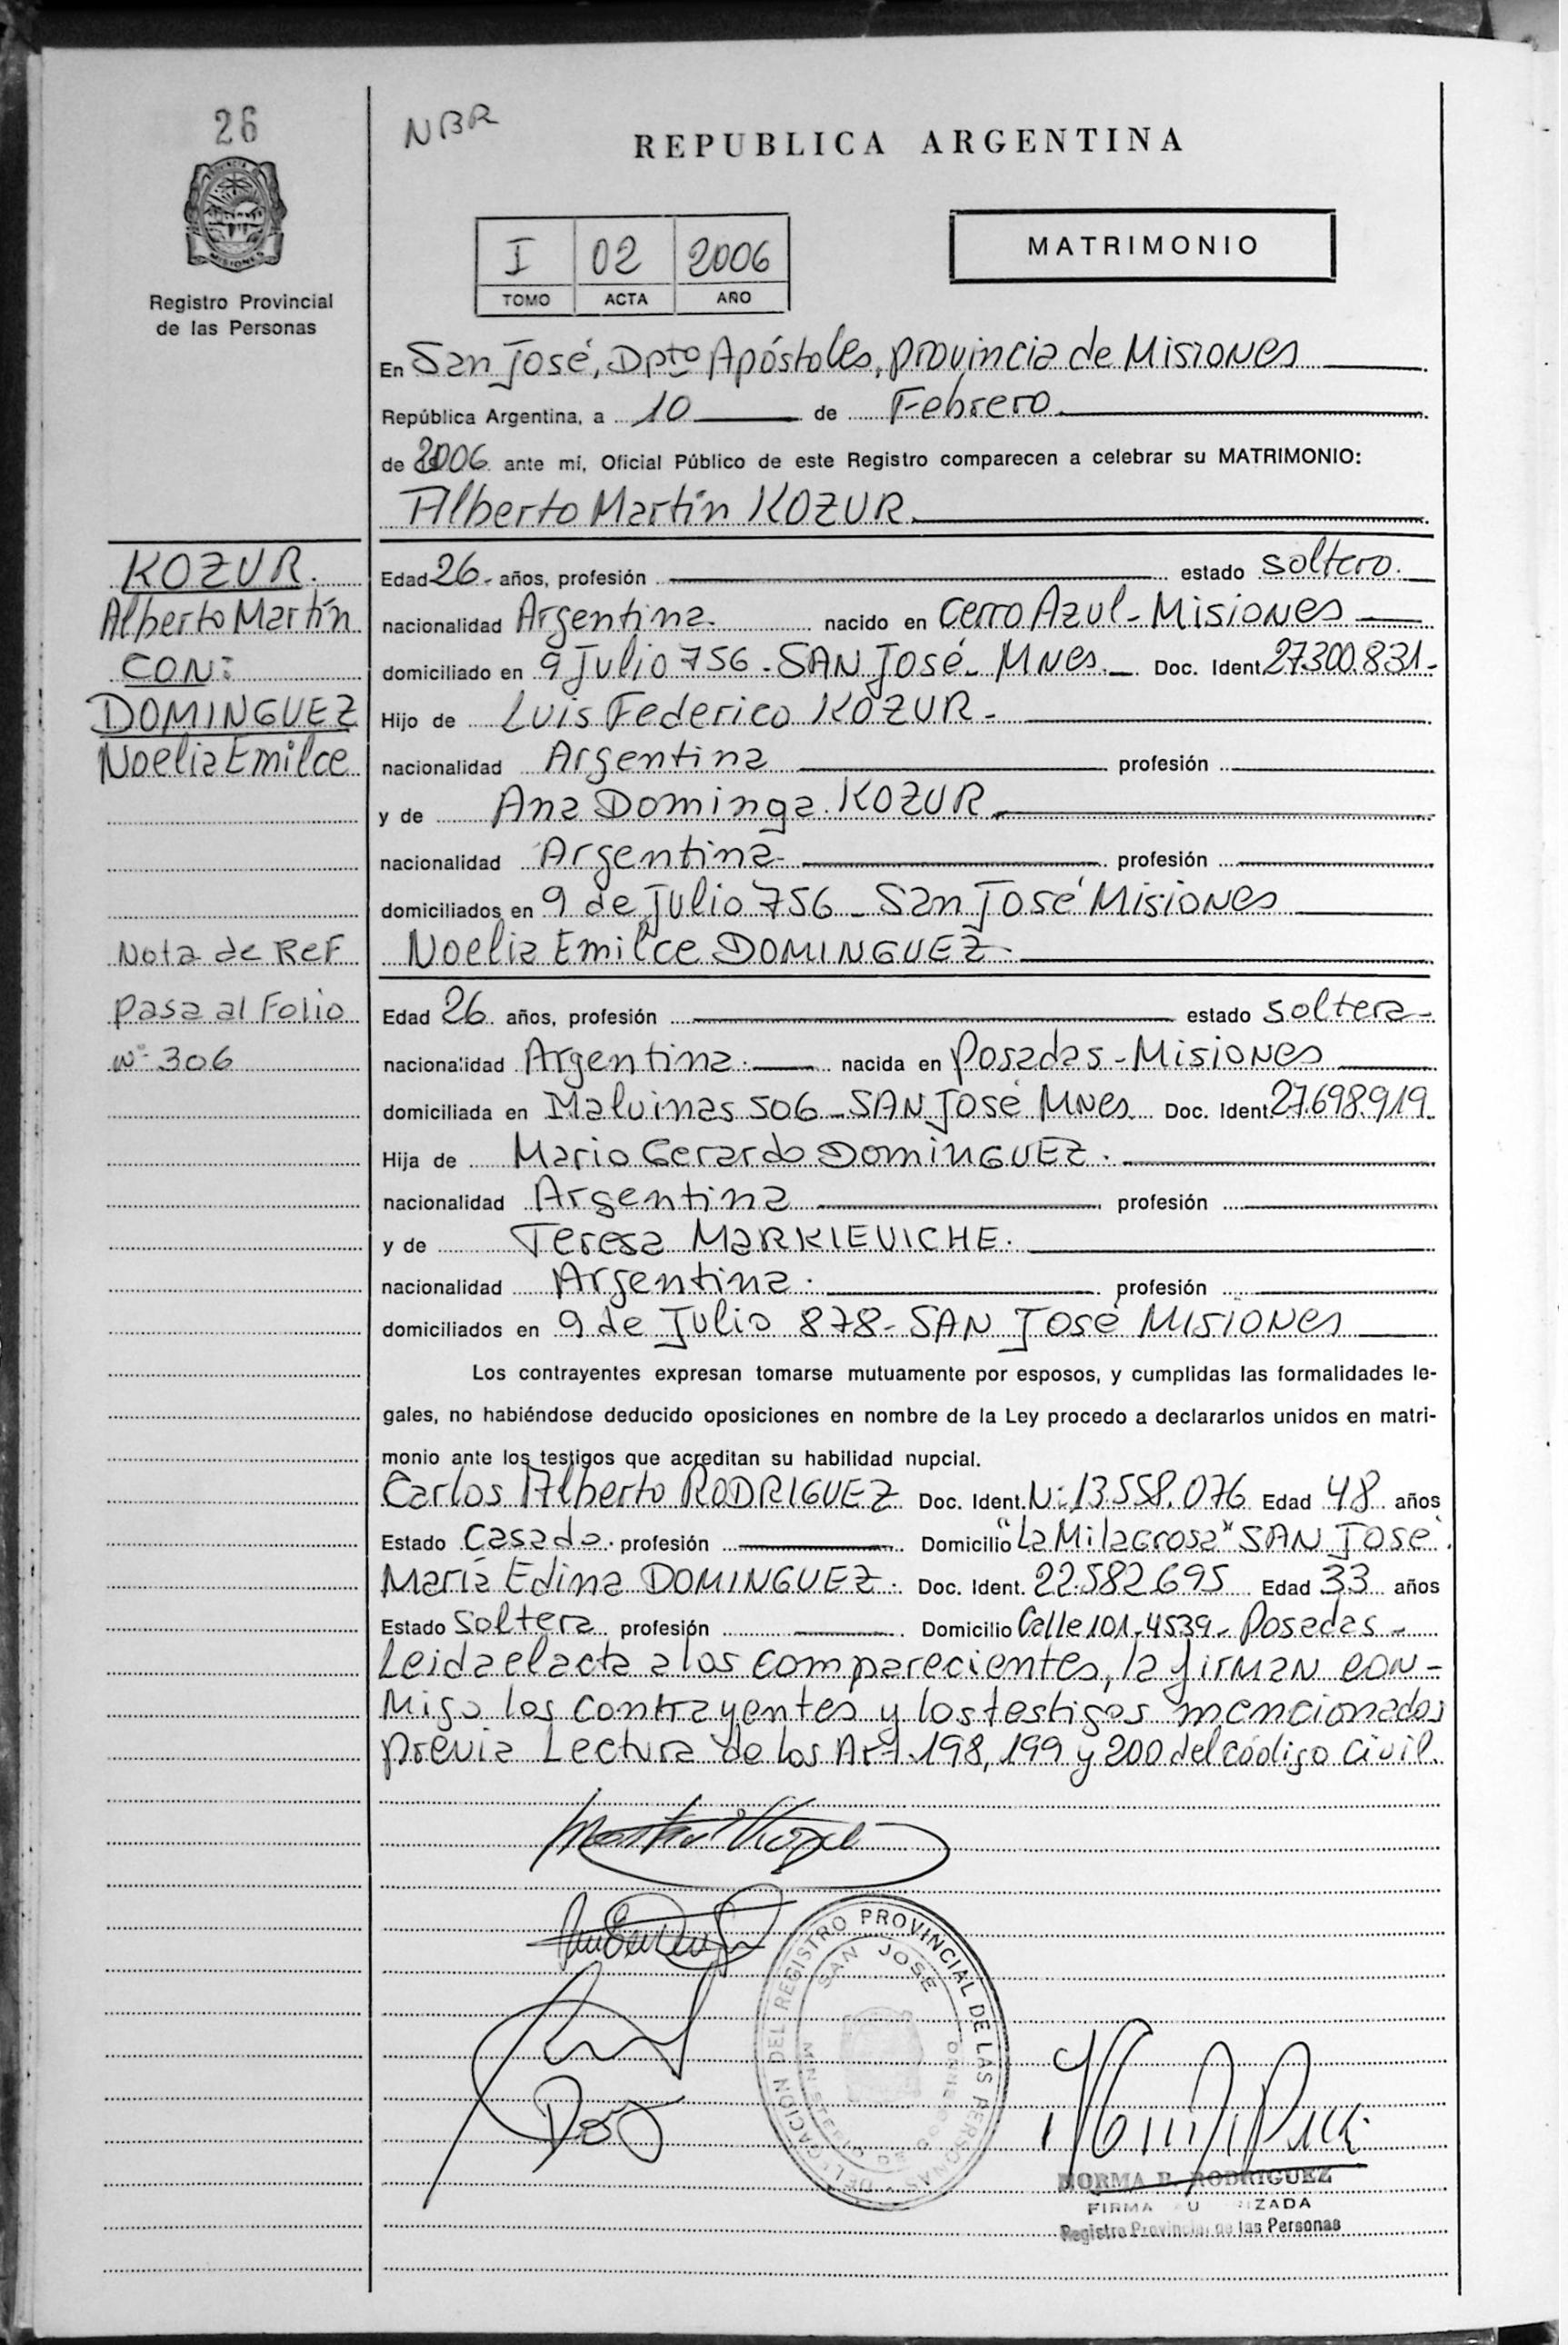 26
NBR
REPUBLICA ARGENTINA
PROVINCIA
MISIONES
Registro Provincial
de las Personas
I 02 2006
TOMO ACTA AÑO
MATRIMONIO
En San José, Dpto Apóstoles, provincia de Misiones
República Argentina, a 10 de Febrero
de 2006 ante mí, Oficial Público de este Registro comparecen a celebrar su MATRIMONIO:
Alberto Martín KOZUR
KOZUR.
Alberto Martín
CON:
DOMINGUEZ
Noelia Emilce
Nota de Ref
Pasa al Folio
Nº 306
Edad 26- años, profesión estado soltero.
nacionalidad Argentina. nacido en Cerro Azul - Misiones
domiciliado en 9 Julio 756 - SAN José - Mnes. Doc. Ident 27.300.831-
Hijo de Luis Federico KOZUR -
nacionalidad Argentina profesión
y de Ana Dominga KOZUR
nacionalidad Argentina profesión
domiciliados en 9 de Julio 756 - San José Misiones
Noelia Emilce DOMINGUEZ
Edad 26 años, profesión estado soltera-
nacionalidad Argentina. nacida en Posadas - Misiones
domiciliada en Malvinas 506 - SAN José Mnes Doc. Ident 27.698.919
Hija de Mario Gerardo DOMINGUEZ.
nacionalidad Argentina profesión
y de Teresa MARKIEVICHE.
nacionalidad Argentina. profesión
domiciliados en 9 de Julio 878 - SAN José Misiones
Los contrayentes expresan tomarse mutuamente por esposos, y cumplidas las formalidades le-
gales, no habiéndose deducido oposiciones en nombre de la Ley procedo a declararlos unidos en matri-
monio ante los testigos que acreditan su habilidad nupcial.
Carlos Alberto RODRIGUEZ Doc. Ident. Nº 13.558.076 Edad 48 años
Estado Casado. profesión Domicilio "La Milagrosa" SAN José.
María Edina DOMINGUEZ. Doc. Ident. 22.582.695 Edad 33 años
Estado Soltera profesión Domicilio Calle 101 - 4539 - Posadas -
Leida el acta a los comparecientes, la firman con-
migo los contrayentes y los testigos mencionados
previa Lectura de los Art. 198, 199 y 200 del código Civil.
DELEGACION DEL REGISTRO PROVINCIAL DE LAS PERSONAS
SAN JOSE
MINISTERIO DE GOBIERNO
NORMA B. RODRIGUEZ
FIRMA AU IZADA
Registro Provincial de las Personas